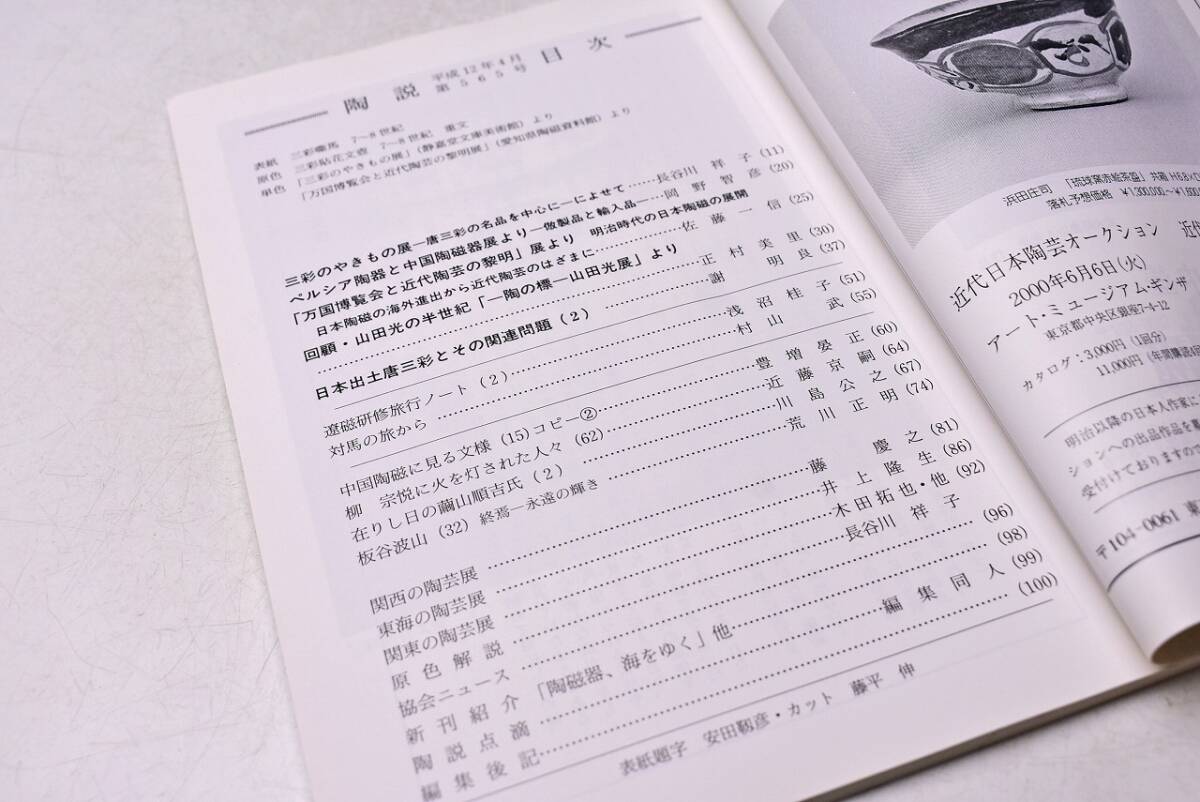 陶説 平成12年4月 第565号 目次
表紙 三彩馬 7~8世紀
原色 三彩貼花文壺 7~8世紀 重文
単色 「三彩のやきもの展」(静嘉堂文庫美術館)より
「万国博覧会と近代陶芸の黎明展」(愛知県陶磁資料館)より
三彩のやきもの展―唐三彩の名品を中心に―によせて……長谷川祥子(11)
ペルシア陶器と中国陶磁器展より―倣製品と輸入品―…岡野智彦(20)
「万国博覧会と近代陶芸の黎明」展より 明治時代の日本陶磁の展開
日本陶磁の海外進出から近代陶芸のはざまに………………佐藤一信(25)
回顧・山田光の半世紀「―陶の標―山田光展」より
……正村美里(30)
日本出土唐三彩とその関連問題(2)……謝明良(37)
遼磁研修旅行ノート(2)……浅沼桂子(51)
対馬の旅から……村山武(55)
中国陶磁に見る文様(15)コピー②……豊増晏正(60)
柳宗悦に火を灯された人々(62)……近藤京嗣(64)
在りし日の繭山順吉氏(2)……川島公之(67)
板谷波山(32)終焉―永遠の輝き……荒川正明(74)
関西の陶芸展……藤慶之(81)
東海の陶芸展……井上隆生(86)
関東の陶芸展……木田拓也・他(92)
原色解説……長谷川祥子
協会ニュース……(96)
新刊紹介「陶磁器、海をゆく」他……(98)
陶説点滴……編集同人(99)
編集後記……(100)
表紙題字 安田靫彦・カット 藤平伸
浜田庄司 「琉球窯赤絵茶盌」共箱 H6.8×
落札予想価格 ¥1,300,000~¥1,800
近代日本陶芸オークション 近
2000年6月6日(火)
アート・ミュージアム・ギンザ
東京都中央区銀座7-4-12
カタログ:3,000円(1回分)
11,000円(年間購読4回
明治以降の日本人作家に
ションへの出品作品を募
受付けておりますので
〒104-0061 東